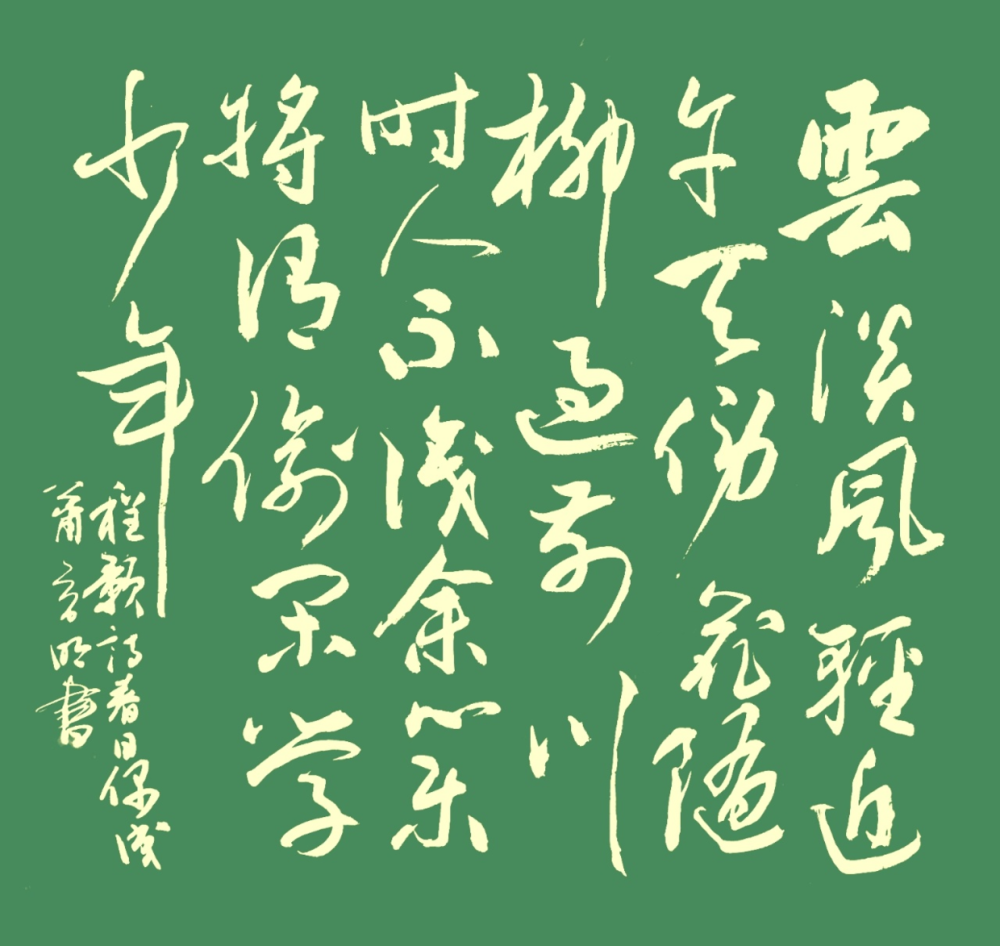 雲淡风輕近
午天傍花随
柳過前川
时人不識余心乐
将谓偷闲学
少年
程颢詩春日偶成
萧 明書